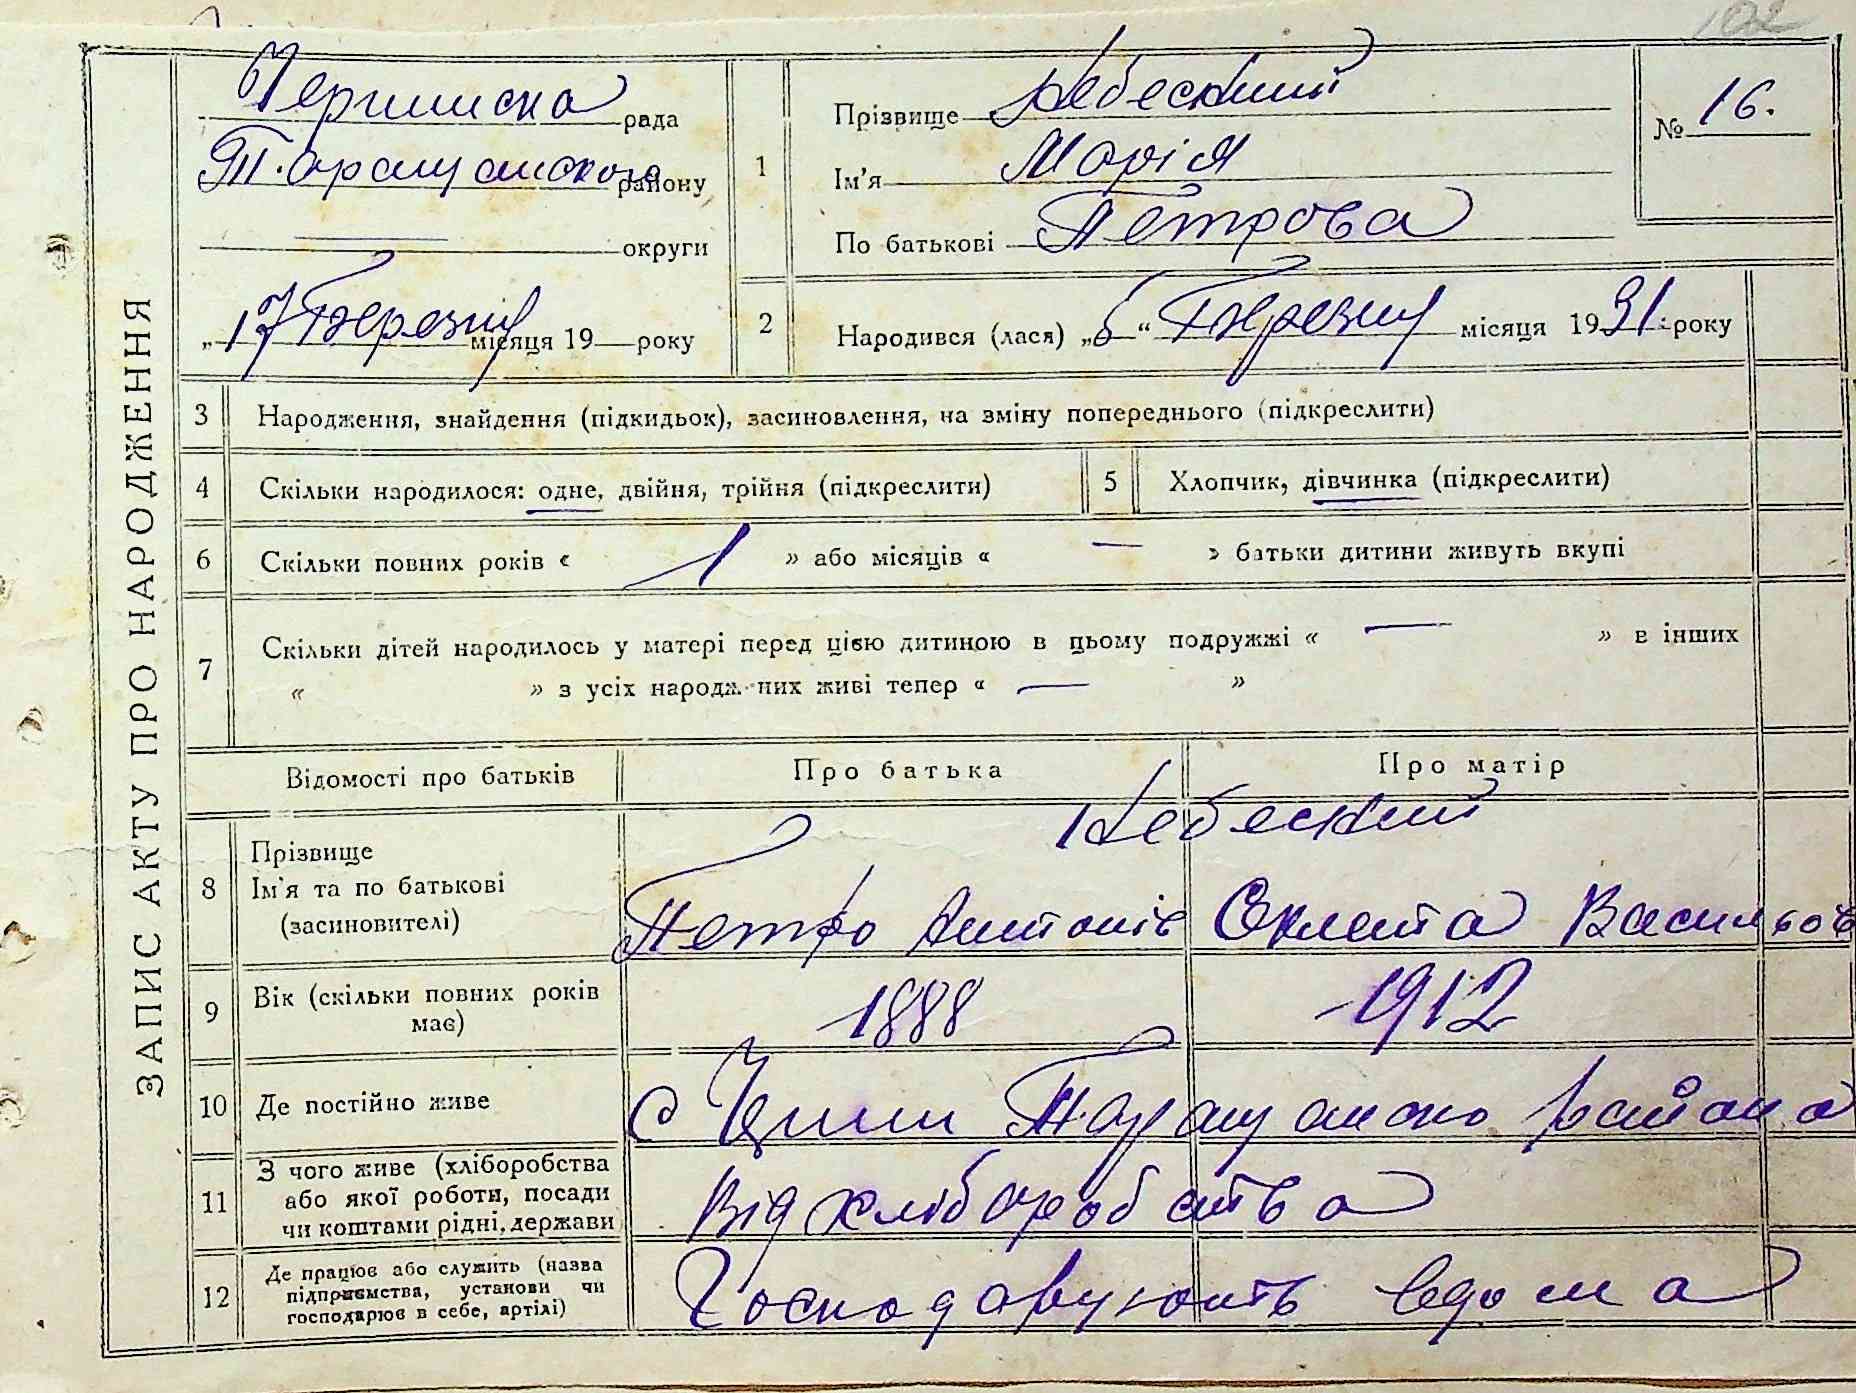 102
ЗАПИС АКТУ ПРО НАРОДЖЕННЯ
рада
Таращанского району
округи
„17 Березня місяця 19 року
1
Прізвище
Ім'я Марія
По батькові Петрова
№ 16.
2
Народився (лася) „6“ Березня місяця 1931 року
3 Народження, знайдення (підкидьок), засиновлення, на зміну попереднього (підкреслити)
4 Скільки народилося: одне, двійня, трійня (підкреслити)
5 Хлопчик, дівчинка (підкреслити)
6 Скільки повних років « 1 » або місяців « — » батьки дитини живуть вкупі
7 Скільки дітей народилось у матері перед цією дитиною в цьому подружжі « — » в інших
« » з усіх народжених живі тепер « — »
Відомості про батьків
Про батька
Про матір
8 Прізвище
Ім'я та по батькові
(засиновителі)
Петро Антонів
Василь
9 Вік (скільки повних років
має)
1888
1912
10 Де постійно живе
с Таращанско района
11 З чого живе (хліборобства
або якої роботи, посади
чи коштами рідні, держави
Від хліборобства
12 Де працює або служить (назва
підприємства, установи чи
господарює в себе, артілі)
Господарують вдома